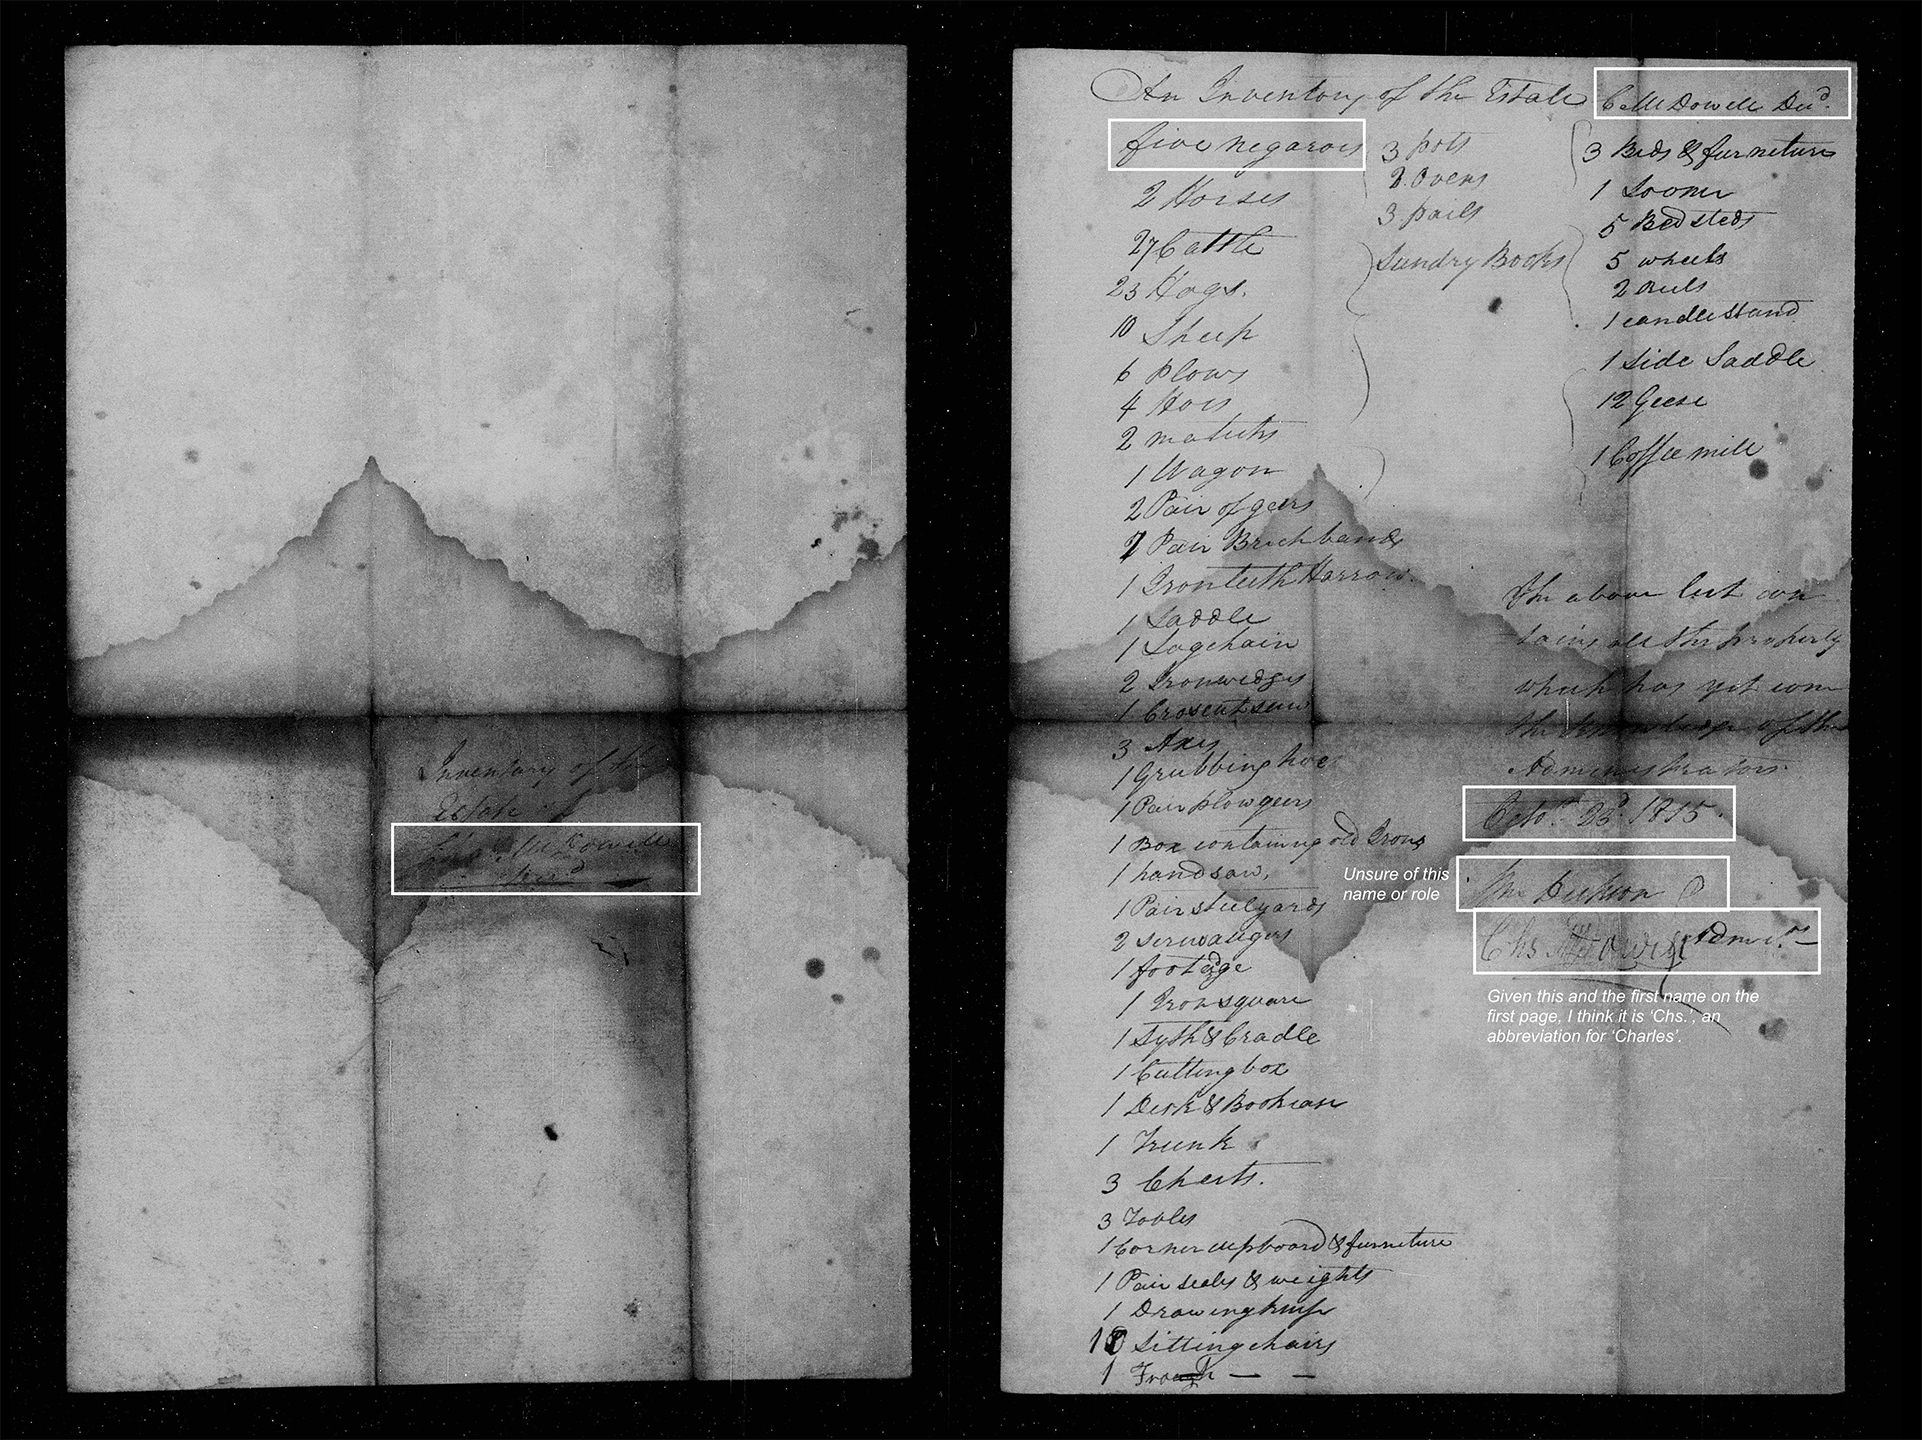 Inventory of the
Estate
McDowell
Decd
An Inventory of the Estate C McDowell Decd.
five negarois
2 Horses
27 Cattle
23 Hogs.
10 Sheep
6 plows
4 Hoes
2 matucks
1 Wagon
2 Pair of gears
Pair Brichbands
1 Ironteeth Harrow.
1 Saddle
1 Logchain
2 Ironwedges
1 Croscut saw
3 Axes
1 Grubbing hoe
1 Pair plowgeers
1 Box containing old Irons
1 handsaw,
1 Pair steelyards
2 screwaugers
1 foot adge
1 Iron square
1 Syth & Cradle
1 Cuttingbox
1 Desk & Bookcase
1 Trunk
3 Chests.
3 Tables
1 Corner cupboard & furneture
1 Pair scales & weights
1 Drawingknife
Sittingchairs
1
3 pots
2 Ovens
3 pails
Sundry Books
3 Beds & furneture
1 Loome
5 Bedsteds
5 wheels
2 reels
1 candlestand
1 Side Saddle
12 Geese
1 Coffee mill
The above list con
tains all the property
which has yet com
the knowledge of the
Administrators.
Octo. 23d 1815.
Unsure of this
name or role
Wm Dickson
Chs McDowell Admirs
Given this and the first name on the
first page, I think it is ‘Chs.’, an
abbreviation for ‘Charles’.